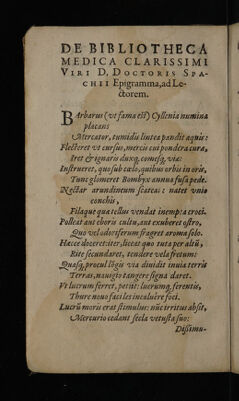 DE BIBLIOTHECA
MEDICA CLARISSIMI
VIRI D. DOCTORIS SPA-
CHII Epigramma, ad Le-
ctorem.
Barbarus (vt fama est) Cyllenia numina
placans
Mercator, tumidis lintea pandit aquis:
Flecteret vt cursus, mercis cui pondera cura,
Iret & ignaris duxq́, comesq́, vias:
Instrueret, quo sub cœlo, quibus orbis in oris,
Tunc glomeret Bombyx aurea fusa pede.
Nectar arundineum scateat: natet vnio
conchis,
Filaque qua tellus vendat inempta croci.
Polleat aut eboris cultu, aut exuberet ostro,
Quo velodoriferum fragret aroma solo.
Hæc vt doceret iter, liceat quo tuta per altũ,
Rite secundaret, tendere vela fretum:
Quasq́, procul lõgis via diuidit inuia terris
Terras, nauigio tangere signa daret.
Vt lucrum ferret, petijt: lucrumq́, ferentis,
Thure nouo fasces incaluere foci.
Lucrũ moris erat stimulus: nũc irritus absit,
Mercurio cedant secla vetusta suo:
Dißimu-